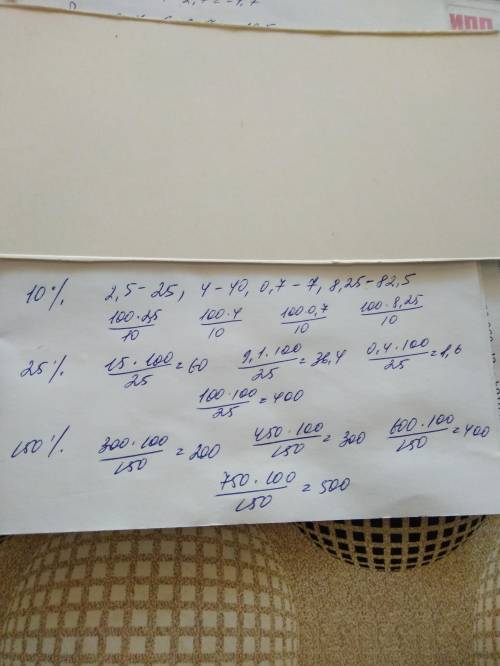 2,7 = -1,7
ИПП
10%. 2,5 - 25, 4 - 40, 0,7 - 7, 8,25 - 82,5
100·25/10 100·4/10 100·0,7/10 100·8,25/10
25%. 15·100/25 = 60 9,1·100/25 = 36,4 0,4·100/25 = 1,6
100·100/25 = 400
150%. 300·100/150 = 200 450·100/150 = 300 600·100/150 = 400
750·100/150 = 500